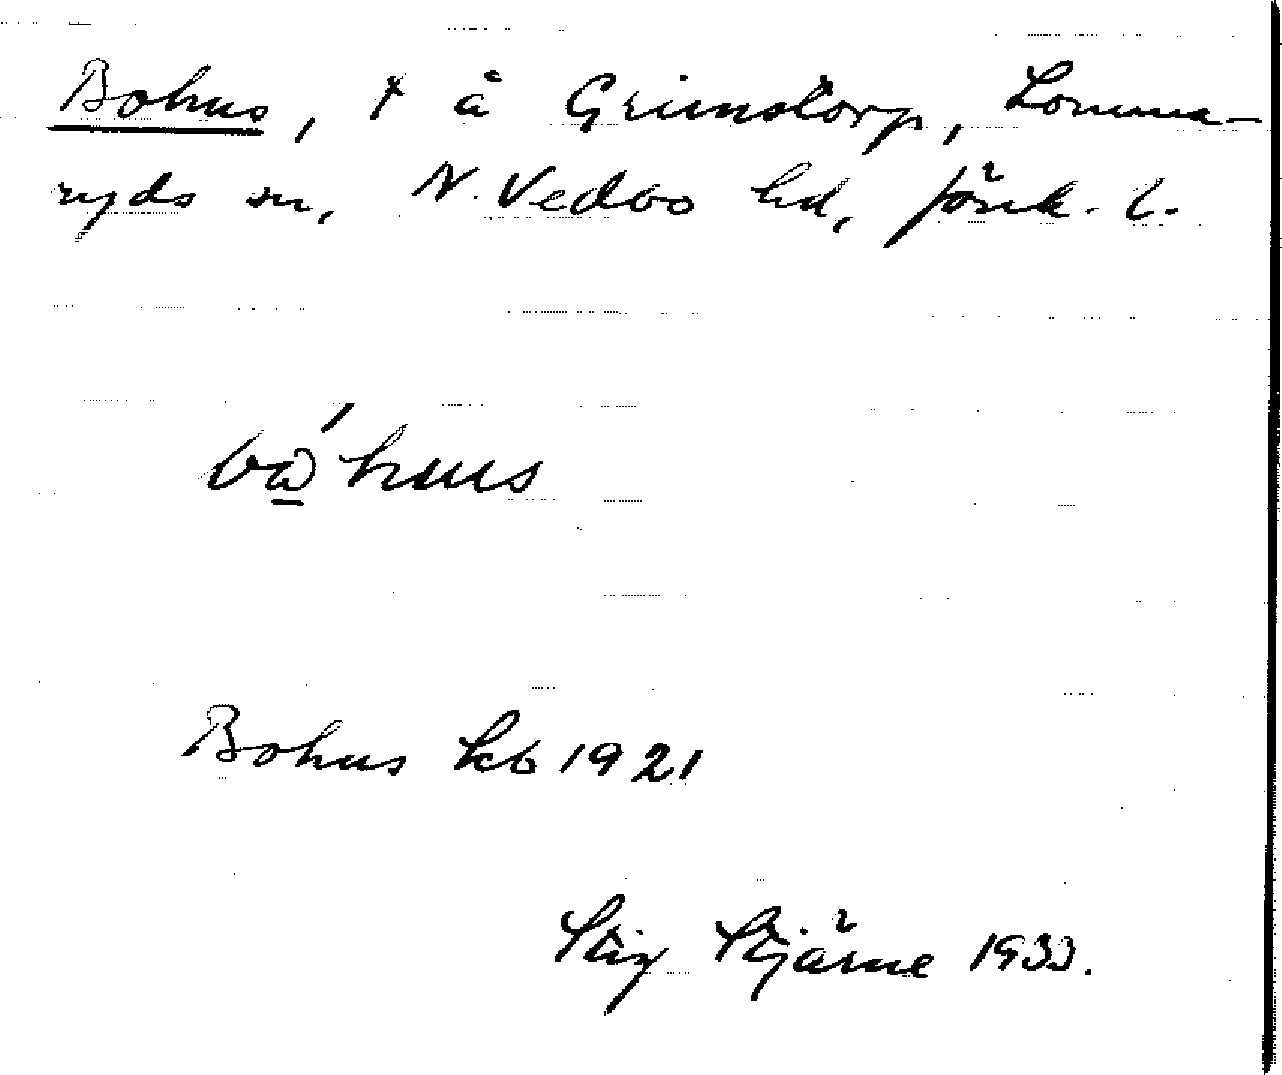 Bohus, t å Grimstorp, Lomma-
ryds sn, N. Vedbo hd, Jönk. l.
Bohus kb 1921
Stig Stjärne 1933.